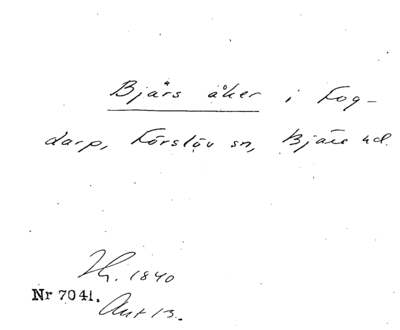 Bjärs åker i Fog-
darp, Förslöv sn, Bjäre hd.
1840
Nr 7041.
13.